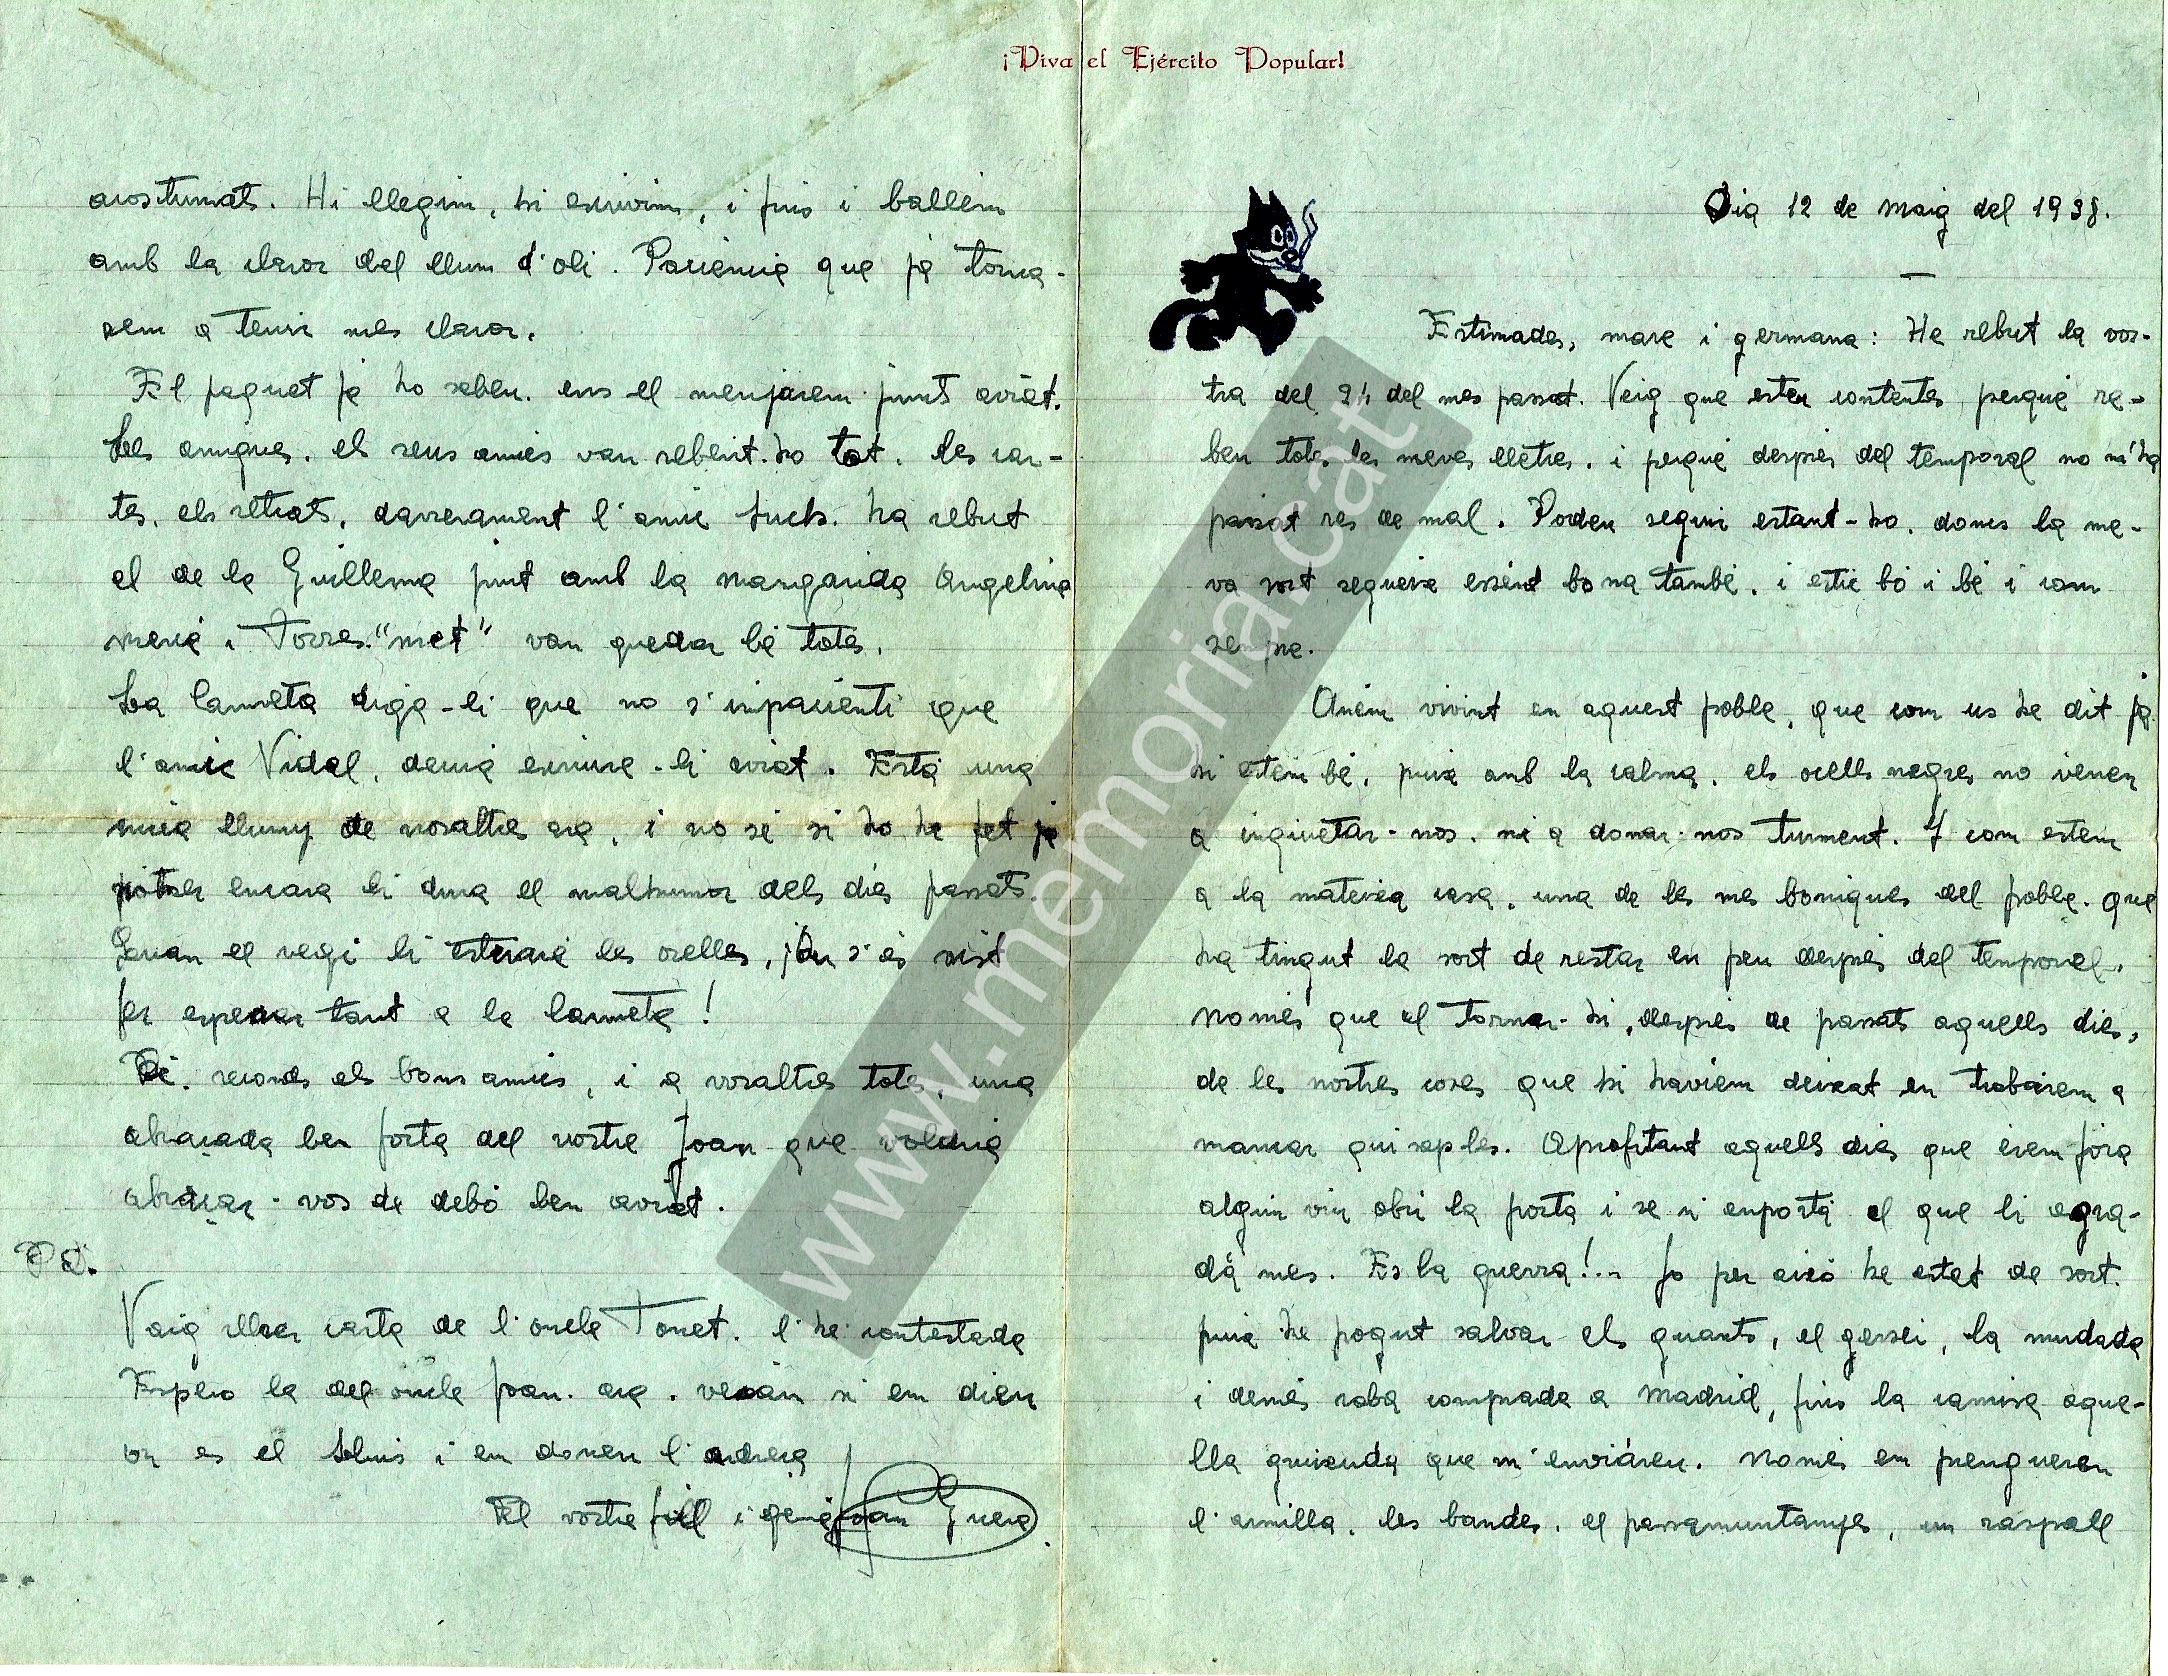 ¡Viva el Ejército Popular!
Dia 12 de Maig del 1938.
Estimades, mare i germana: He rebut la vos-
tra del 24 del mes passat. Veig que esteu contentes, perquè re-
beu totes les meves lletres. i perquè desprès del temporal no m'ha
passat res de mal. Podeu seguir estant-ho. doncs la me-
va sort segueix essent bona també. i estic bó i bé i com
sempre.
Anem vivint en aquest poble, que com us he dit ja
hi estem bé, puix amb la calma, els ocells negres no venen
a inquietar-nos. ni a donar-nos turment. I com estem
a la mateixa casa, una de les mes boniques del poble. que
ha tingut la sort de restar en peu desprès del temporal.
Només que al tornar-hi, desprès de passats aquells dies,
de les nostres coses que hi haviem deixat en trobárem a
mancar qui sap les. Aprofitant aquells dies que èrem fòra
algun viu obrí la porta i se n'emportá el que li agra-
dá mes. Es la guerra!... Jo per aixó he estat de sort.
puix he pogut salvar els guants, el gersei, la mudada
i demés roba comprada a Madrid, fins la camisa aque-
lla gruixuda que m'enviáreu. Només em prengueren
l'armilla. les bandes. el passamuntanyes, un raspall
acostumats. Hi llegim, hi escrivim, i fins i ballem
amb la claror del llum d'oli. Paciencia que ja torna-
rem a tenir mes claror.
El paquet ja ho sabeu. ens el menjarem junts aviat.
Les amigues. els seus amics van rebent-ho tot. les car-
tes. els retrats. darrerament l'amic Lluch. ha rebut
el de la Guillerma junt amb la Margarida Angelina
Mercé i Torres. "met" van quedar bé totes.
La Carmeta diga-li que no s'impacienti que
l'amic Vidal, deurá escriure-li aviat. Está una
mica lluny de nosaltres ara, i no sé si ho ha fet ja
potser encara li dura el malhumor dels dies passats.
Quan el vegi li estiraré les orelles, ¡On s'és vist
fer esperar tant a la Carmeta!
Bé. records els bons amics, i a vosaltres totes, una
abraçada ben forta del vostre Joan que voldria
abraçar-vos de debó ben aviat.
PD.
Vaig rebrer carta de l'oncle Tonet. l'he contestada
Espero la del oncle Joan. ara. veuám si em dieu
on es el Lluis i em doneu l'adreça
El vostre fill i germá Joan Guera
www.memoria.cat